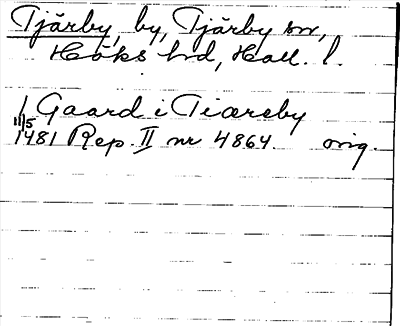 Tjärby, by, Tjärby sn,
Höks hd, Hall. l.
1 Gaard i Tiæreby
11/5
1481 Rep. II nr 4864. orig.